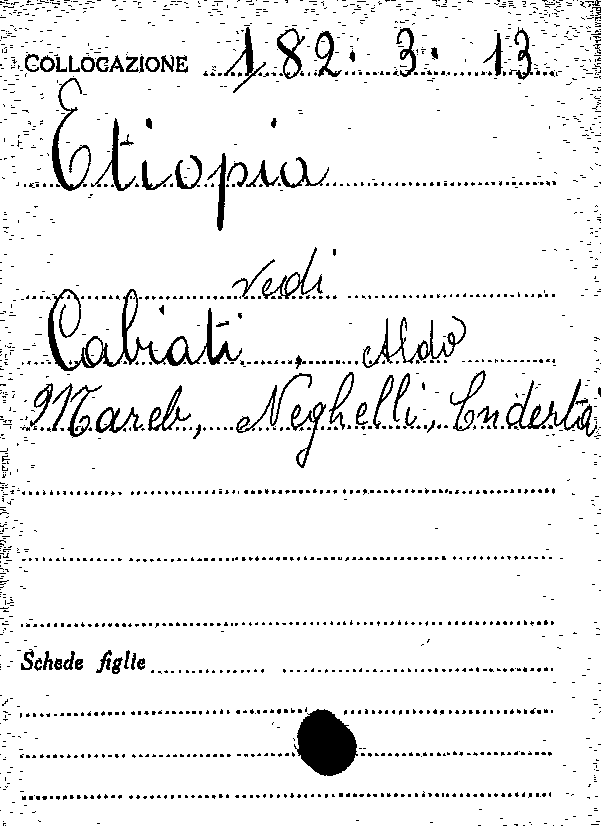 COLLOCAZIONE 182. 3. 13
Etiopia
vedi
Cabiati, Aldo
Mareb, Neghelli, Endertà
Schede figlie